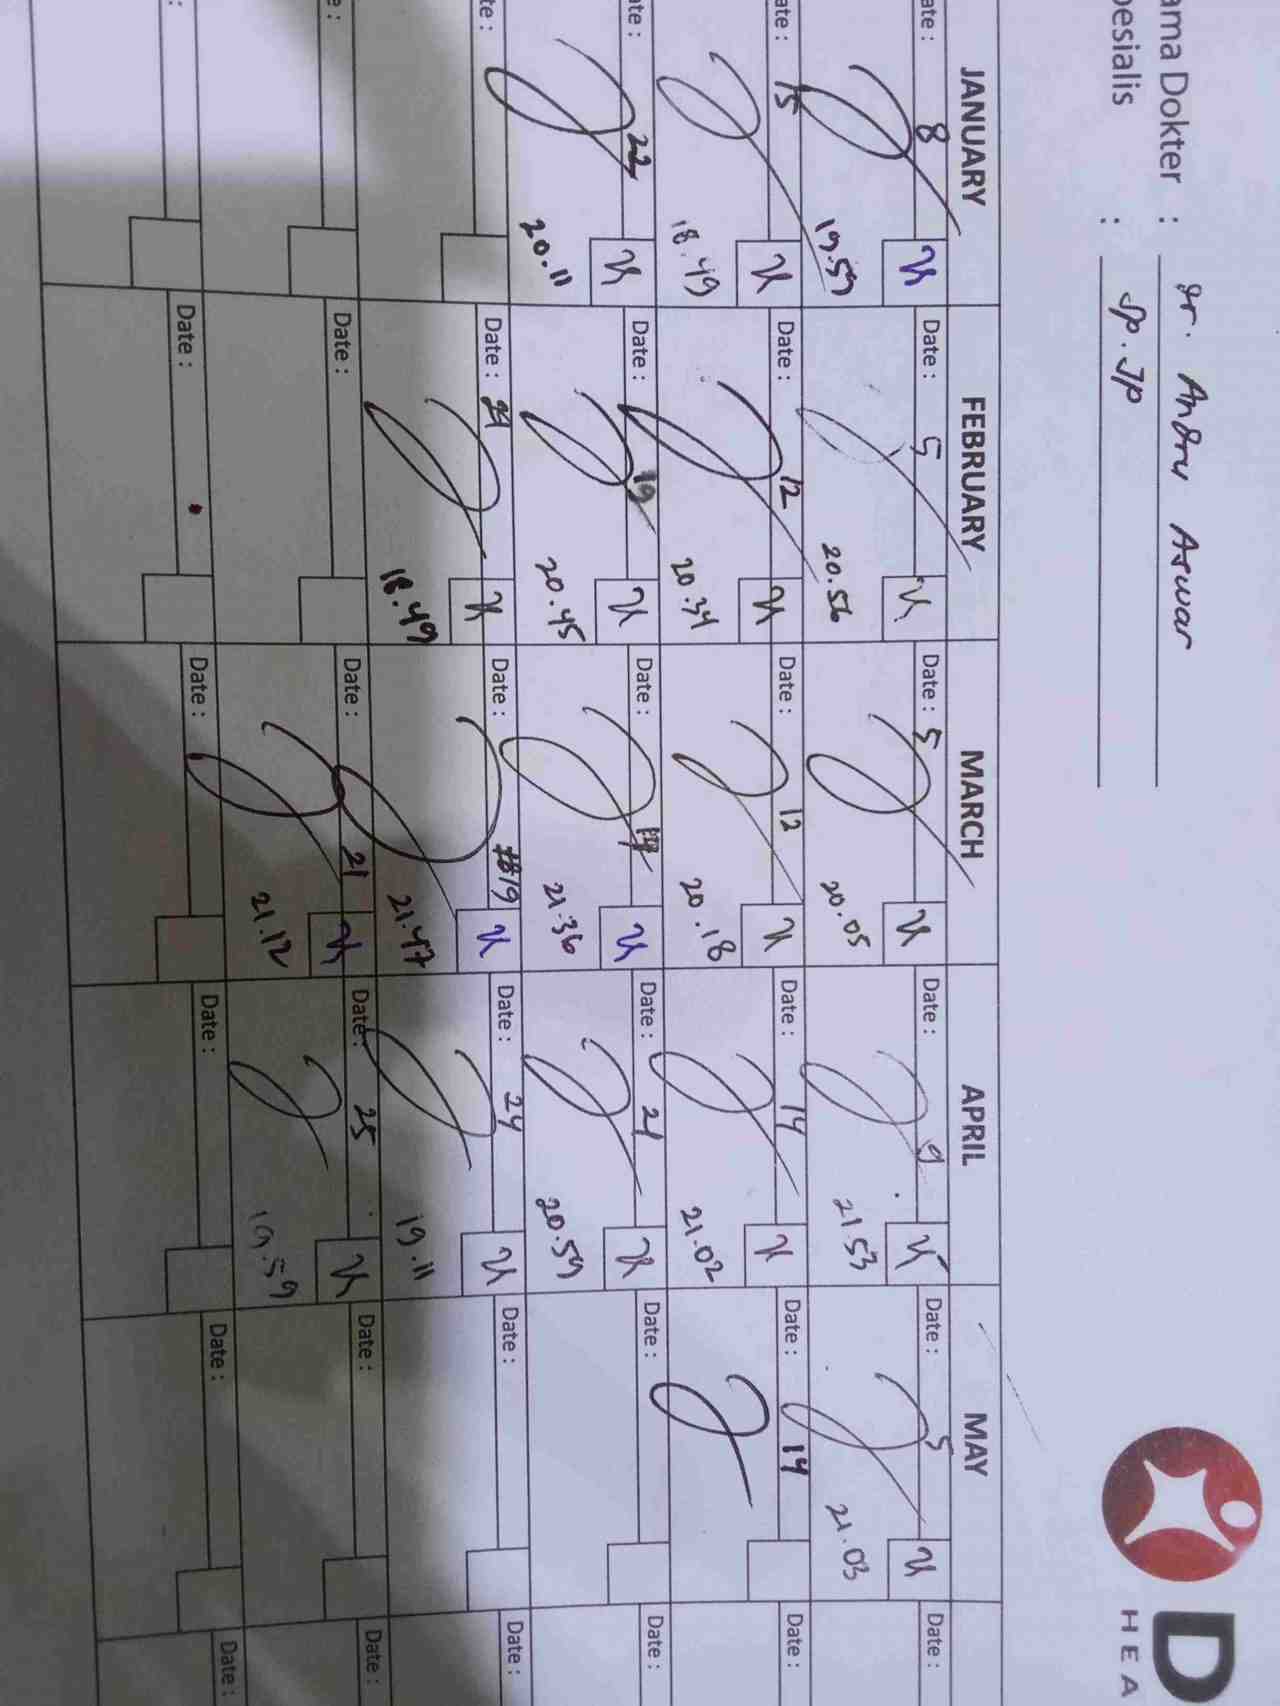 ama Dokter : dr. Andru Aswar
pesialis : Sp. JP
D
HEA
JANUARY FEBRUARY MARCH APRIL MAY
ate : 8 Date : 5 Date : 5 Date : 9 Date : 5 Date :
19.59 20.56 20.05 21.53 21.03
ate : 15 Date : 12 Date : 12 Date : 14 Date : 14 Date :
18.49 20.34 20.18 21.02
ate : 22 Date : 19 Date : Date : 21 Date : Date :
20.11 20.45 21.36 20.59
te : Date : Date : 19 Date : 24 Date : Date :
18.49 21.47 19.11
e : Date : Date : 21 Date : 25 Date : Date :
21.12 19.59
: Date : Date : Date : Date : Date :